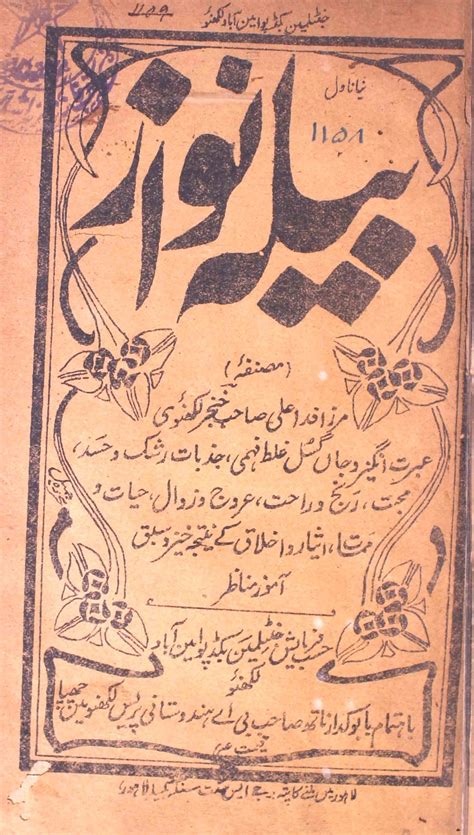 ۱۱۵۹
جنٹلمین بکڈپو امین آباد لکھنؤ
نیا ناول
۱۱۵۸
بیلہ نواز
(مصنفۂ)
مرزا فدا علی صاحب خنجر لکھنوی
عبرت انگیز و جاں گسل غلط فہمی، جذبات رشک و حسد،
محبت، رنج و راحت، عروج و زوال، حیات و
ممات، ایثار و اخلاق کے نتیجہ خیز و سبق
آموز مناظر
حسب فرمایش جنٹلمین بکڈپو امین آباد
لکھنؤ
باہتمام بابو کدار ناتھ صاحب بی اے ہندوستانی پریس لکھنؤ میں چھپا
قیمت
لاہور میں ملنے کا پتہ: جے ایس سنت سنگھ لاہور